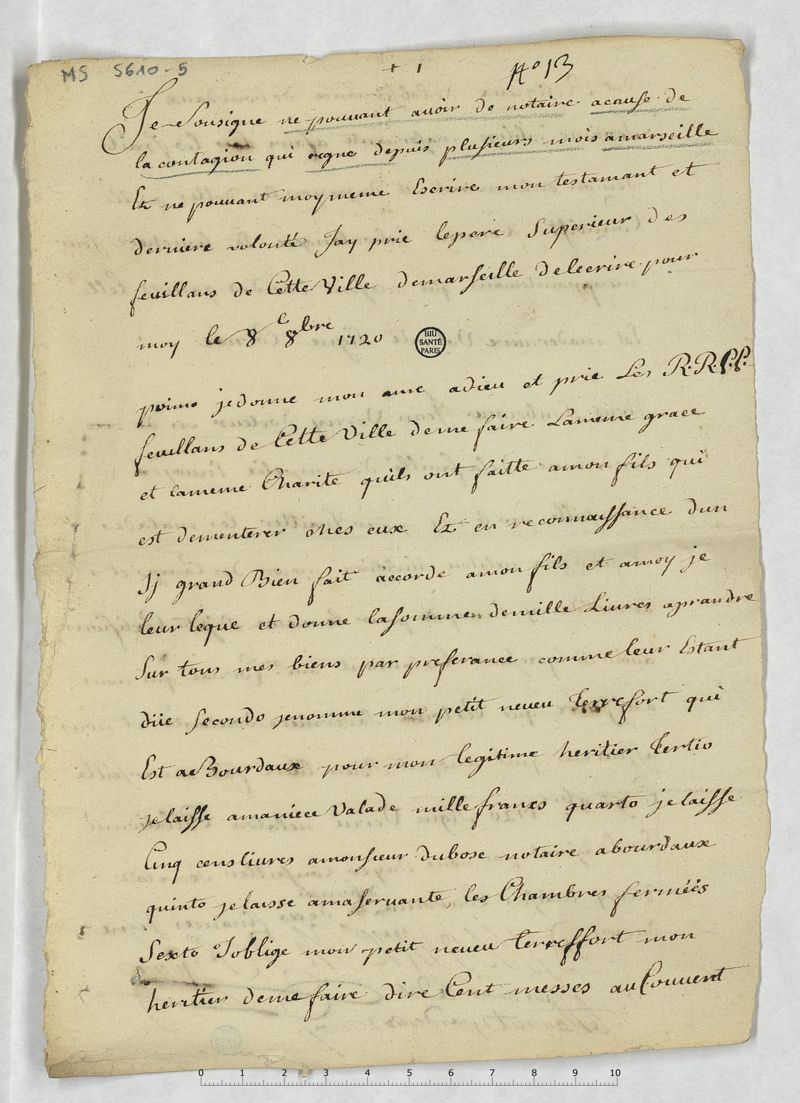 MS 5610-5
+ 1
No 13
Je Sousigne ne pouvant avoir de notaire acause de
la contagion qui regne depuis plusieurs mois amarseille
Et ne pouvant moymeme Escrire mon testamant et
derniere volonté Jay prie lepere Superieur des
feuillans de Cette Ville demarseille delecrire pour
moy le 8e 8bre 1720
BIU
SANTÉ
PARIS
primo jedonne mon ame adieu et prie Les R.R.P.P.
feuillans de Cette Ville deme faire Lameme grace
et lameme Charite quils ont faitte amon fils qui
est dementerer ches eux Et en reconnaissance dun
Sj grand Bien fait accorde amon fils et amoy je
leur leque et donne lasomme demille Livres aprandre
Sur tous mes biens par preferance comme leur Estant
düe Secondo jenomme mon petit neveu Terrefort qui
Est aBourdaux pour mon legitime heritier Tertio
jelaisse amaniece Valade mille francs quarto jelaisse
Cinq cens livres amonsieur dubosc notaire abourdaux
quinto jelaisse amaservante, les Chambres fermées
Sexto Joblige mon petit neveu terreffort mon
heritier deme faire dire Cent messes auCouvent
0 1 2 3 4 5 6 7 8 9 10